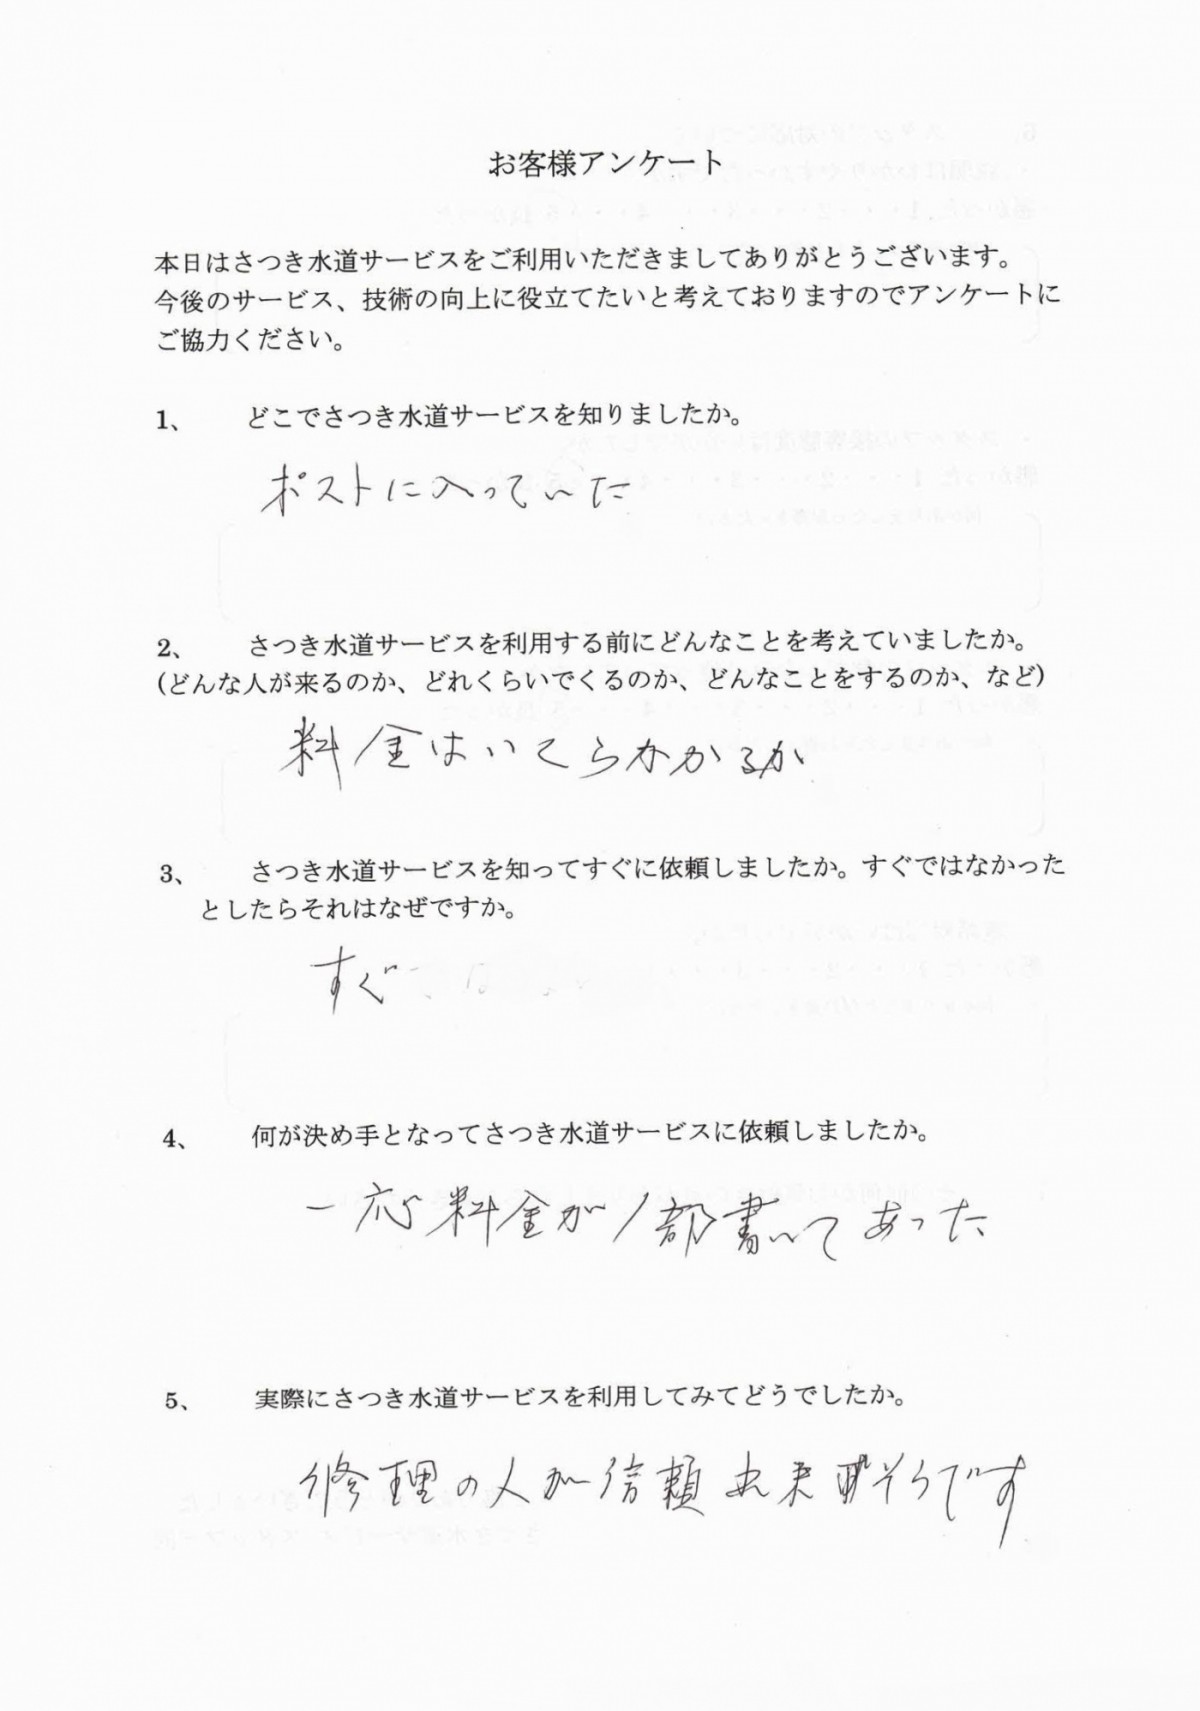 お客様アンケート
本日はさつき水道サービスをご利用いただきましてありがとうございます。
今後のサービス、技術の向上に役立てたいと考えておりますのでアンケートに
ご協力ください。
1、 どこでさつき水道サービスを知りましたか。
ポストに入っていた
2、 さつき水道サービスを利用する前にどんなことを考えていましたか。
(どんな人が来るのか、どれくらいでくるのか、どんなことをするのか、など)
料金はいくらかかるか
3、 さつき水道サービスを知ってすぐに依頼しましたか。すぐではなかった
としたらそれはなぜですか。
すぐ
4、 何が決め手となってさつき水道サービスに依頼しましたか。
一応料金が1部書いてあった
5、 実際にさつき水道サービスを利用してみてどうでしたか。
修理の人が信頼出来そうです